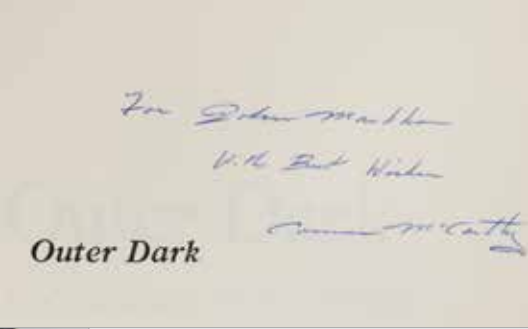 For John
With Best Wishes
Cormac McCarthy
Outer Dark